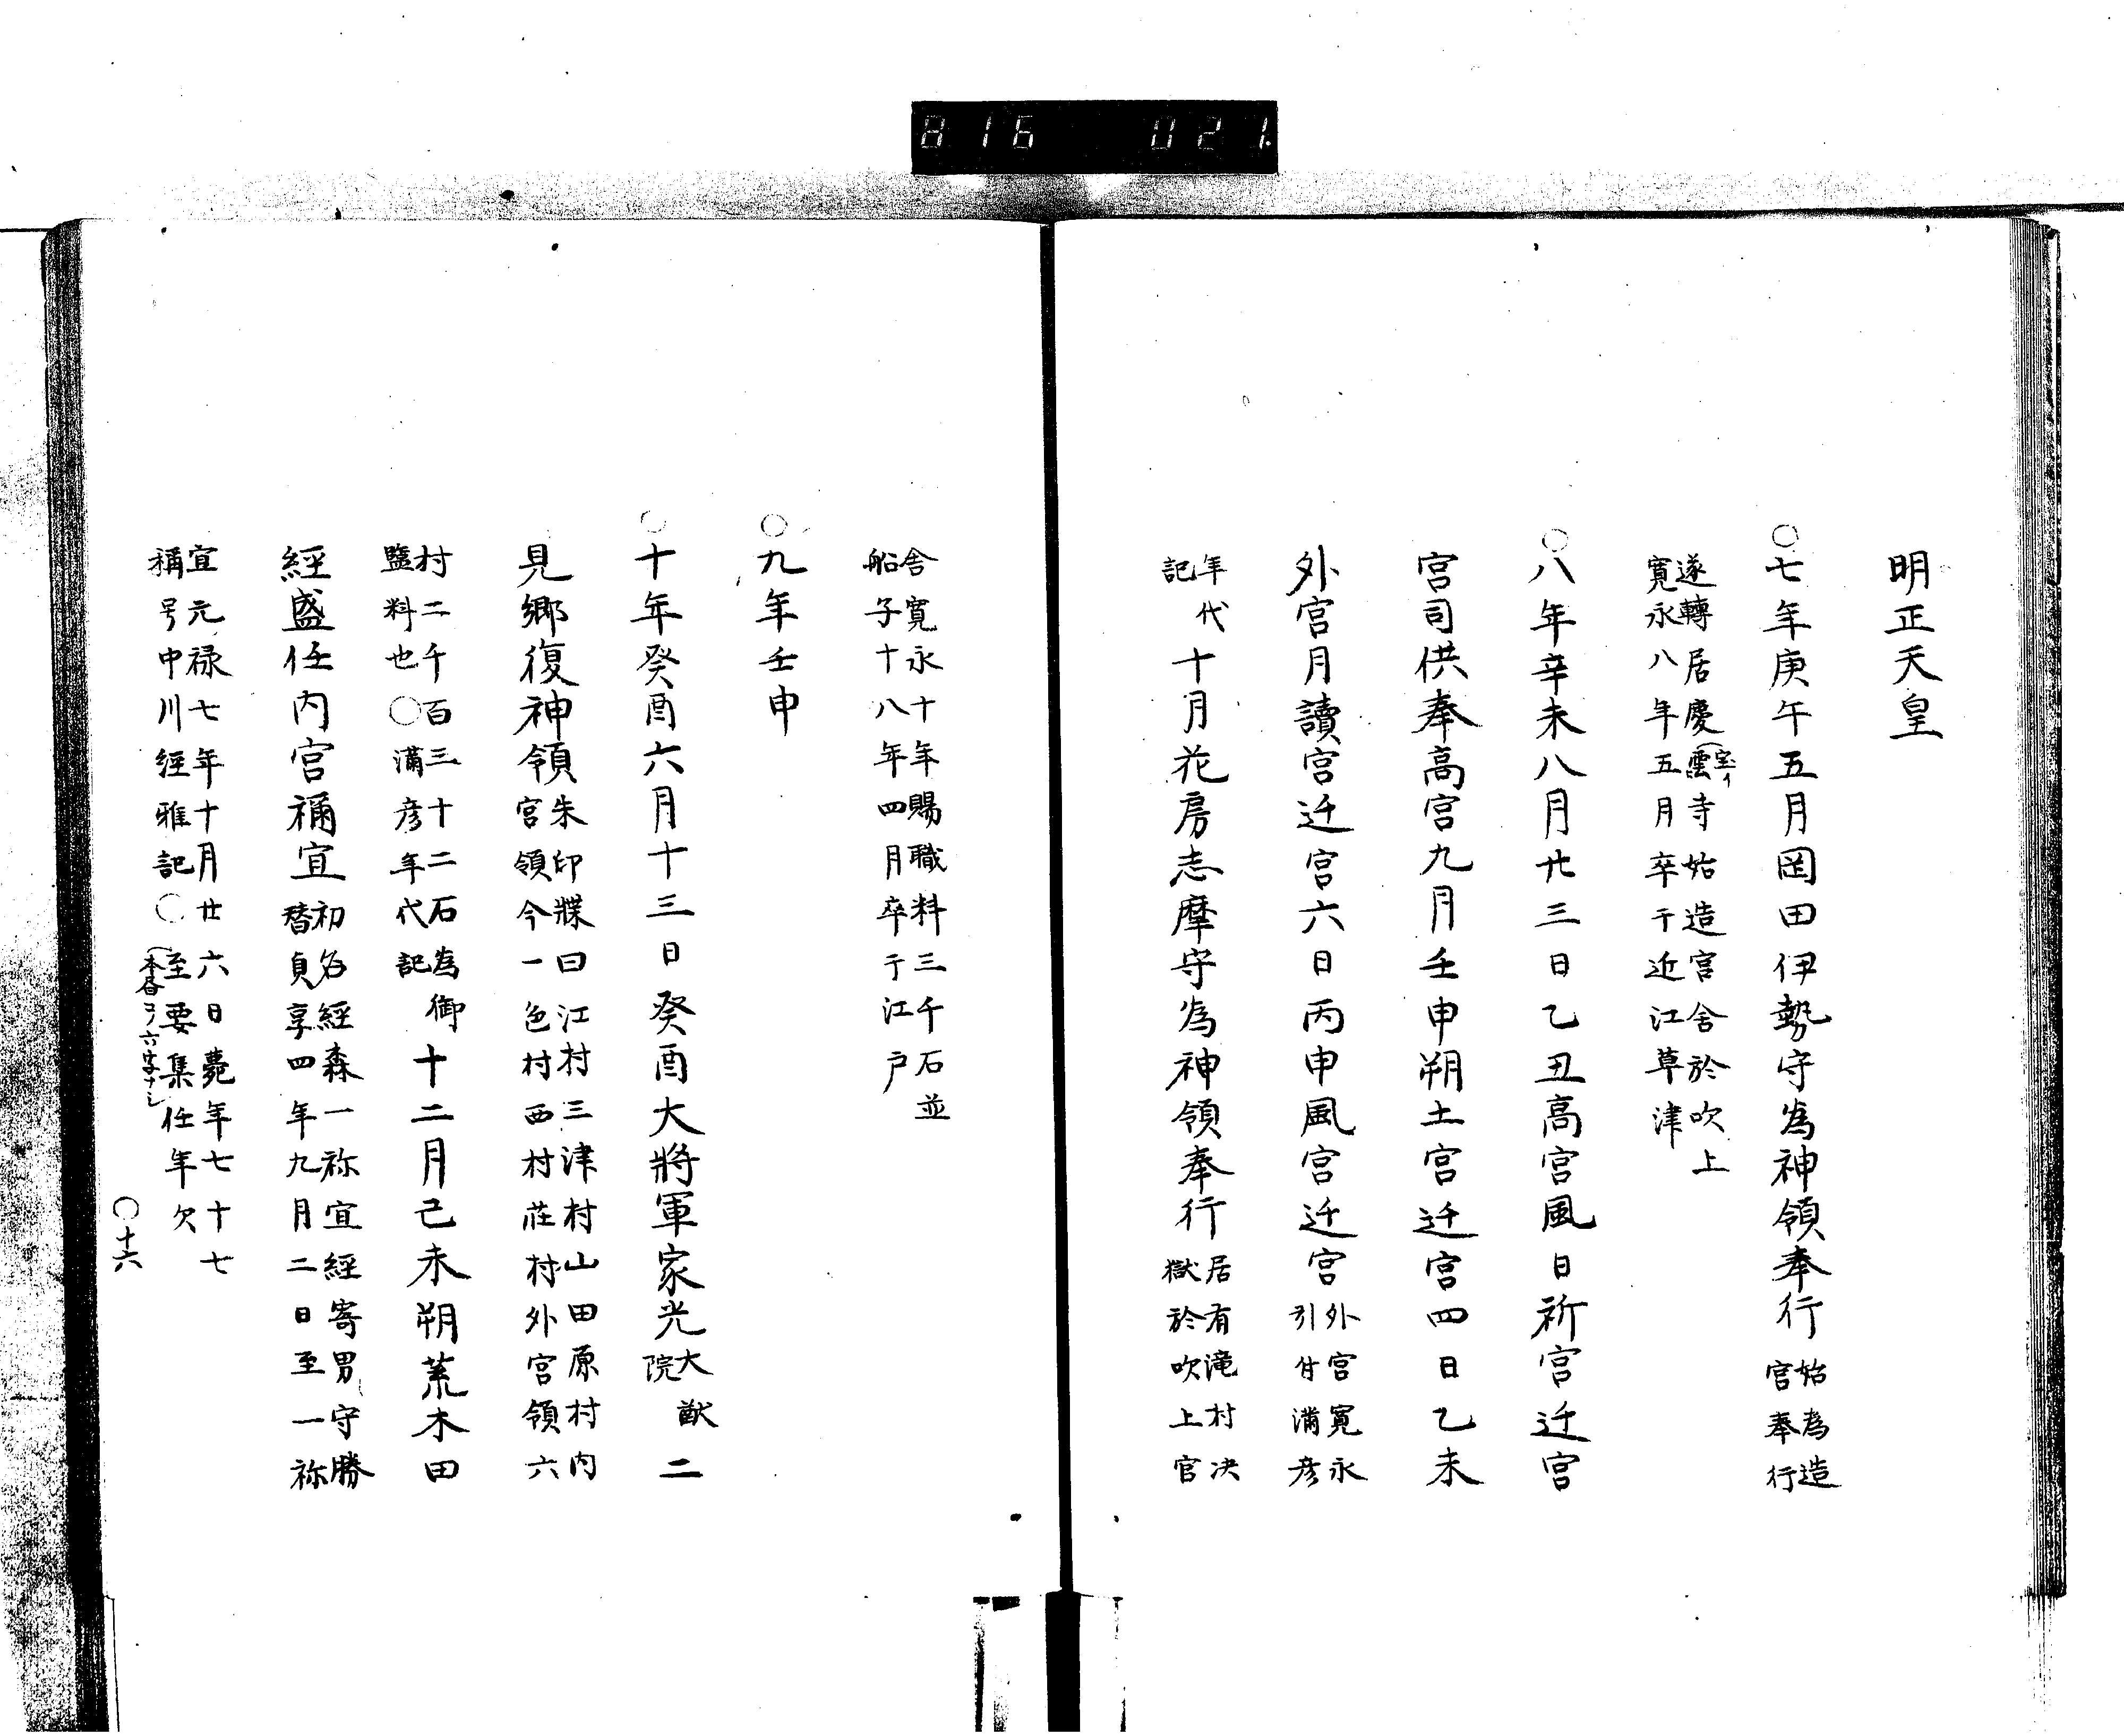 816 021.
明正天皇
○七年庚午五月岡田伊勢守為神領奉行始為造
宮奉行
遂轉居慶雲(室イ)寺始造宮舎於吹上
寛永八年五月卒于近江草津
○八年辛未八月廿三日乙丑高宮風日祈宮迁宮
宮司供奉高宮九月壬申朔土宮迁宮四日乙未
外宮月讀宮迁宮六日丙申風宮迁宮外宮寛永
引付満彦
年代
記
十月花房志摩守為神領奉行居有滝村决
獄於吹上官
舎寛永十年賜職料三千石並
船子十八年四月卒于江戸
○九年壬申
○十年癸酉六月十三日癸酉大將軍家光大猷
院
二
見郷復神領朱印牒曰江村三津村山田原村内
宮領今一色村西村荘村外宮領六
村二千百三十二石為御
鹽料也○満彦年代記
十二月己未朔荒木田
經盛任内宮禰宜初名經森一祢宜經寄男守勝
替貞享四年九月二日至一祢
宜元禄七年十月廿六日薨年七十七
稱号中川經雅記○至要集任年欠
(本書コノ六字ナシ
○十六